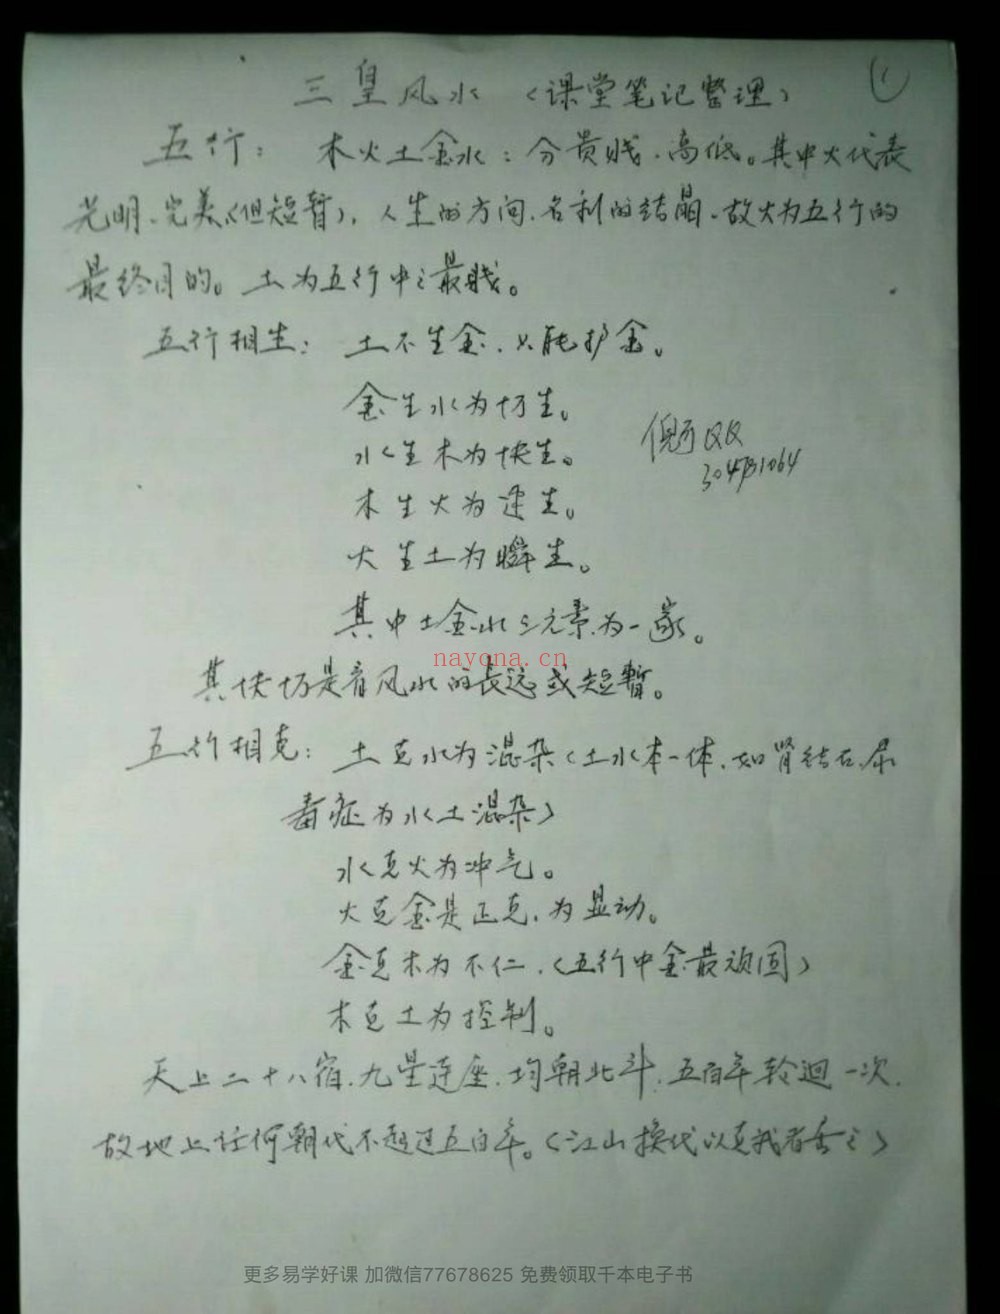 三皇风水 (课堂笔记整理) 1
五行: 木火土金水:分贵贱、高低。其中火代表
光明、完美(但短暫),人生的方向、名利的结晶、故火为五行的
最终目的。土为五行中之最贱。
五行相生: 土不生金、只能护金。
金生水为切生。
水生木为快生。
木生火为速生。
火生土为瞬生。
QQ
其中土金水三元素为一家。
nayona.cn
其快切是看风水的長远或短暫。
五行相克: 土克水为混杂(土水本一体、如肾结石、尿
毒症为水土混杂)
水克火为冲气。
火克金是正克、为显动。
金克木为不仁、(五行中金最顽固)
木克土为控制。
天上二十八宿、九星连座、均朝北斗、五百年轮迴一次、
故地上任何朝代不超过五百年。(江山换代以克我者委之)
更多易学好课 加微信77678625 免费领取千本电子书